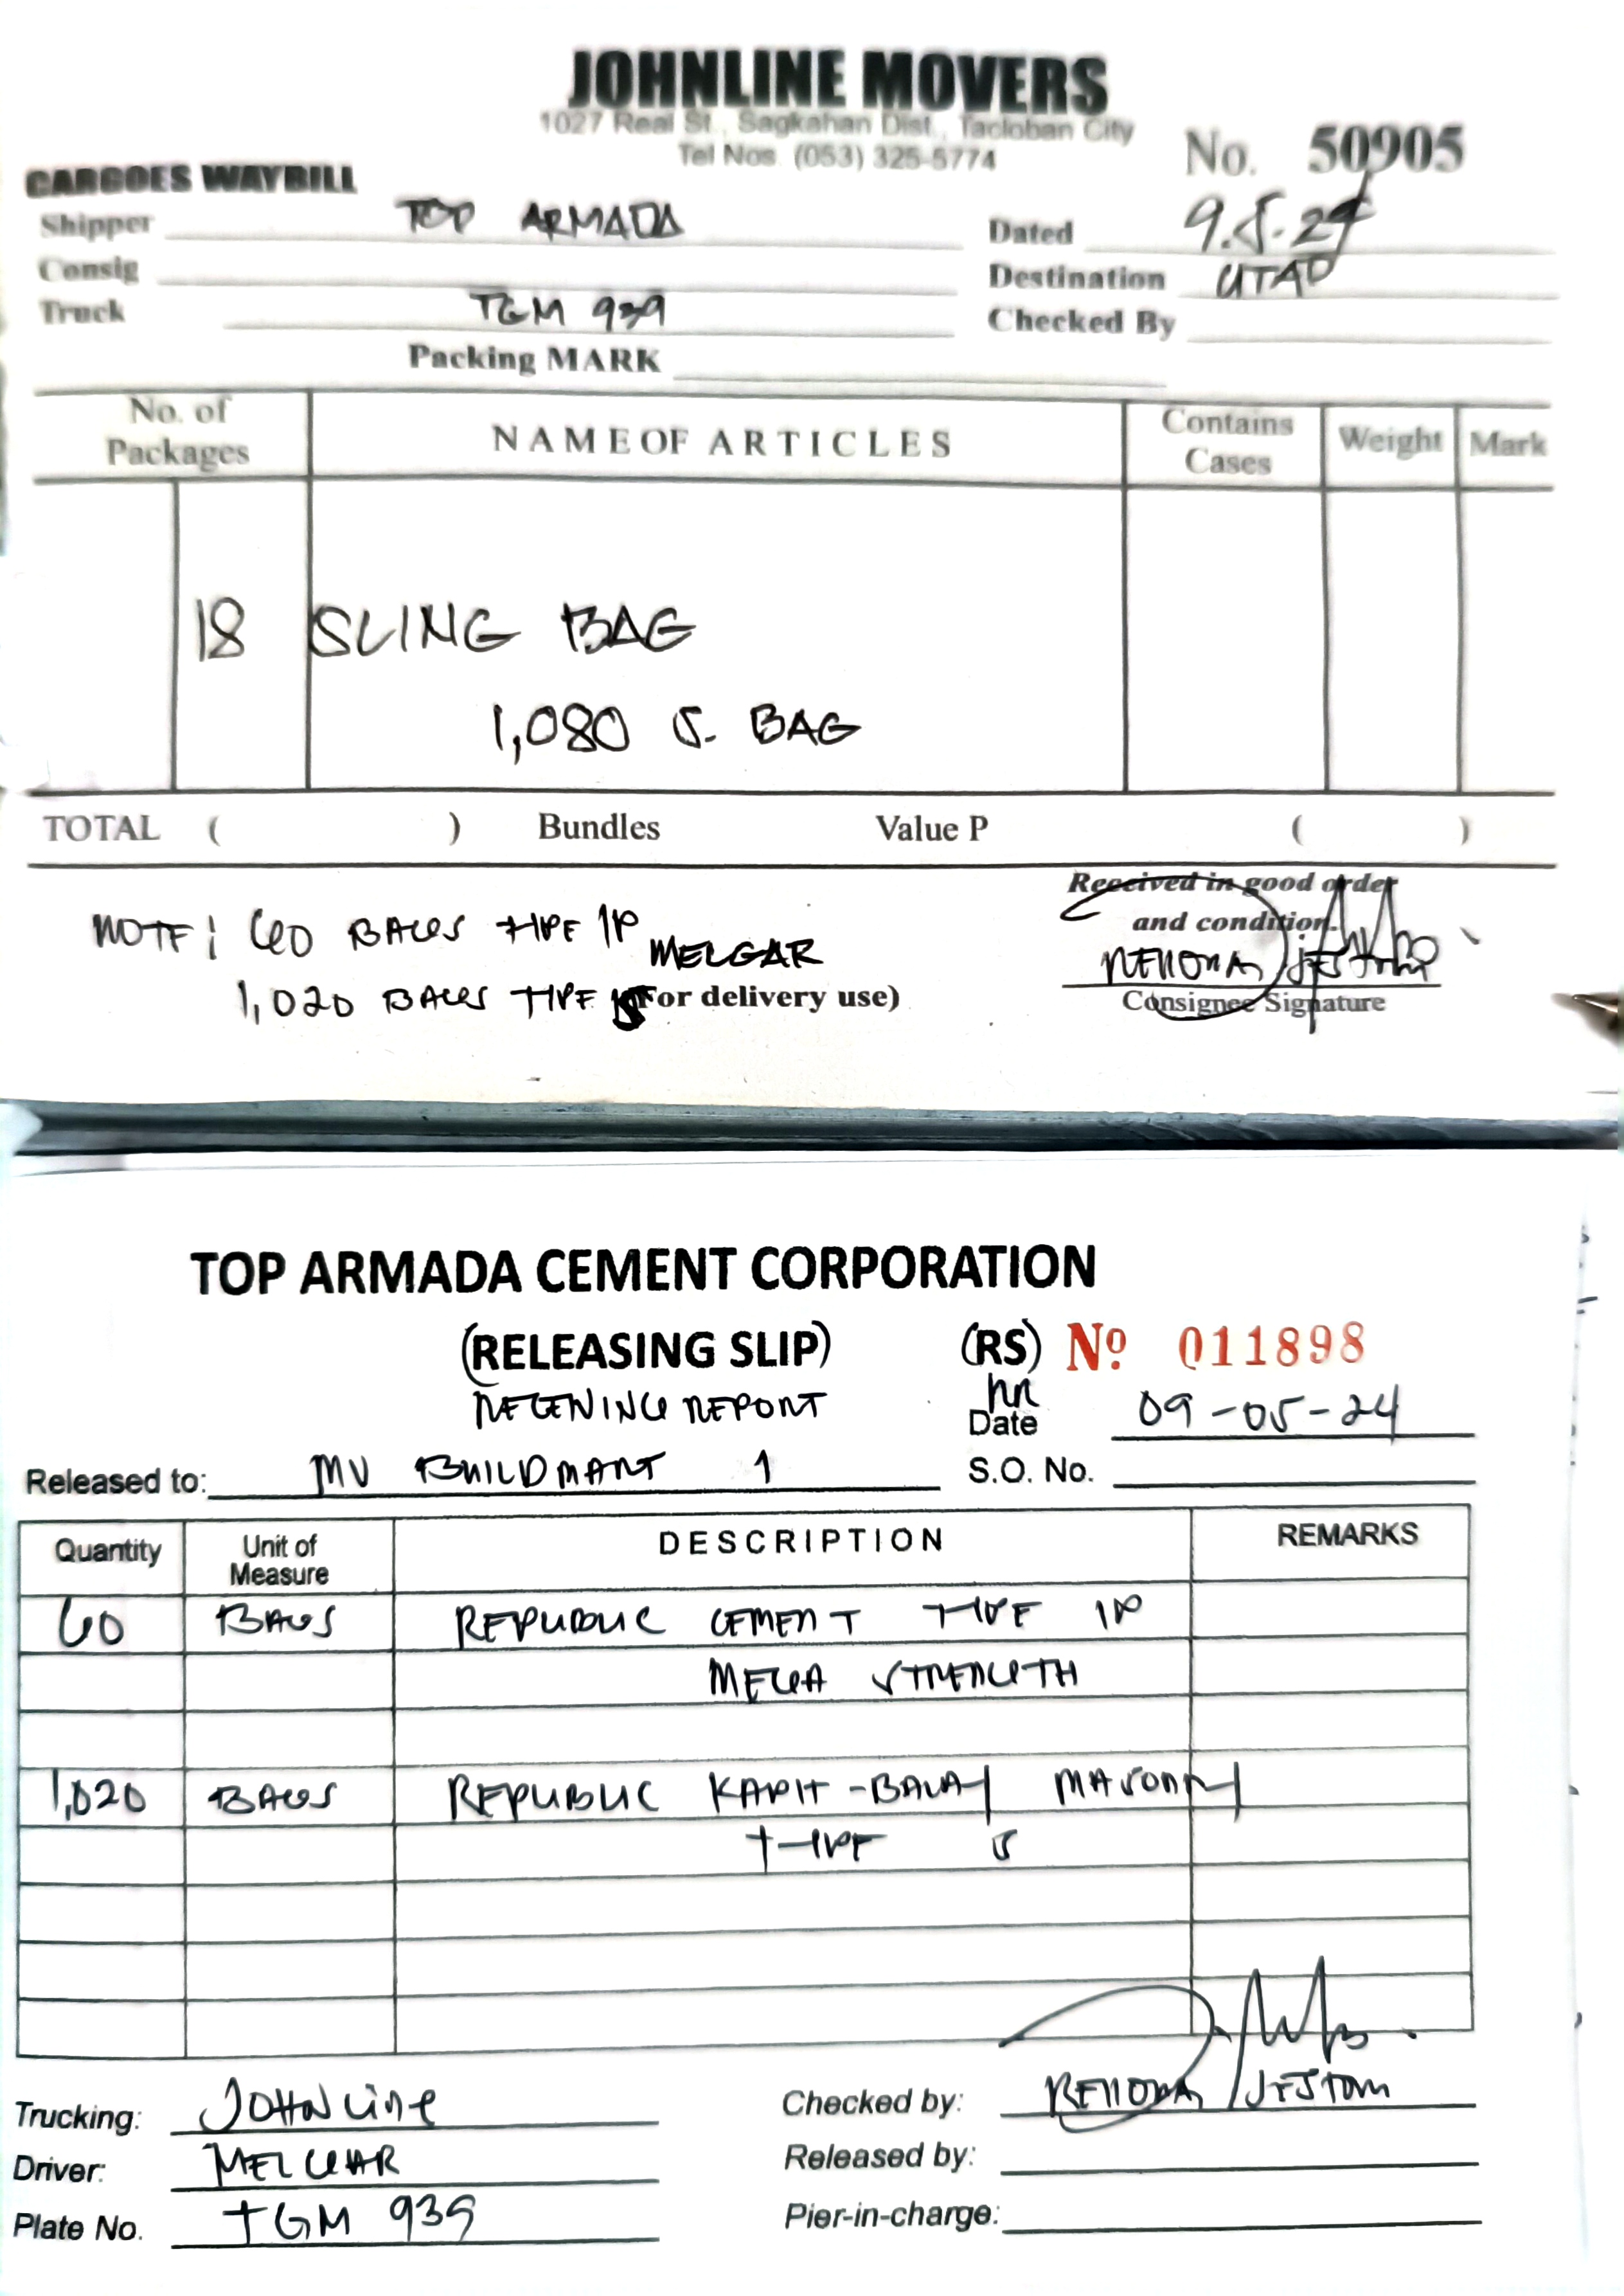 JOHNLINE MOVERS
1027 Real St., Sagkahan Dist., Tacloban City
Tel Nos. (053) 325-5774
No. 50905
CARGOES WAYBILL
Shipper TOP ARMADA
Dated 9.5.24
Consig
Destination UTAP
Truck TGM 939
Checked By
Packing MARK
No. of Packages NAME OF ARTICLES Contains Cases Weight Mark
18 SLING BAG
1,080 S. BAG
TOTAL ( ) Bundles Value P ( )
Received in good order
and condition.
NOTE: 60 BAGS TYPE 1P MELGAR
1,020 BAGS TYPE S (For delivery use)
JESTONI
Consignee Signature
TOP ARMADA CEMENT CORPORATION
(RELEASING SLIP) (RS) Nº 011898
RECEIVING REPORT RR
Date 09-05-24
Released to: MV BUILDMART 1 S.O. No.
Quantity Unit of Measure DESCRIPTION REMARKS
60 BAGS REPUBLIC CEMENT TYPE 1P
MEGA STRENGTH
1,020 BAGS REPUBLIC KAPIT-BALAY MASONRY
TYPE S
Trucking: JOHNLINE
Checked by: JESTONI
Driver: MELGHAR
Released by:
Plate No. TGM 939
Pier-in-charge: